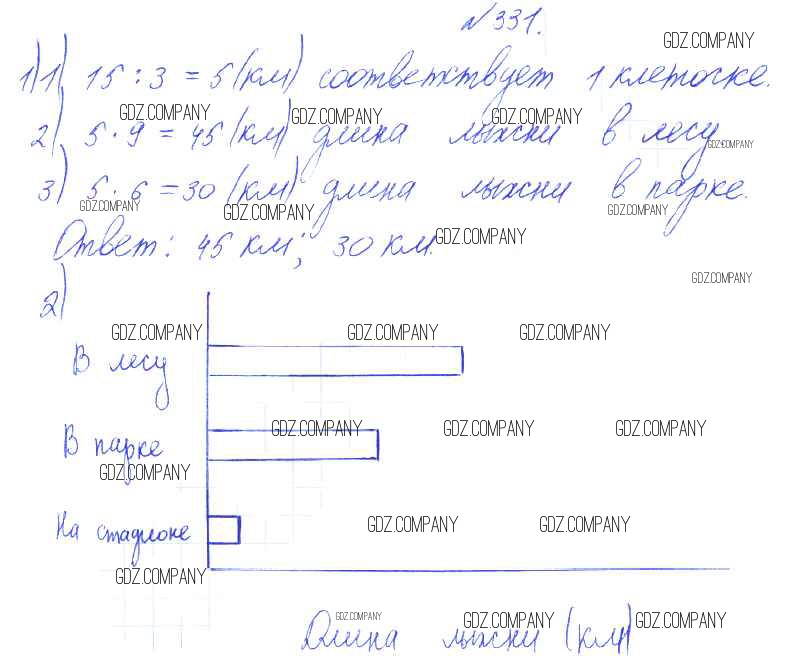 №331.
GDZ.COMPANY
1) 1) 15 : 3 = 5 (км) соответствует 1 клеточке.
GDZ.COMPANY GDZ.COMPANY GDZ.COMPANY
2) 5 · 9 = 45 (км) длина лыжни в лесу
GDZ.COMPANY
3) 5 · 6 = 30 (км) длина лыжни в парке.
GDZ.COMPANY GDZ.COMPANY GDZ.COMPANY
Ответ: 45 км; 30 км.
GDZ.COMPANY
GDZ.COMPANY
2)
GDZ.COMPANY GDZ.COMPANY GDZ.COMPANY
В лесу
GDZ.COMPANY GDZ.COMPANY GDZ.COMPANY
В парке
GDZ.COMPANY
На стадионе
GDZ.COMPANY GDZ.COMPANY
GDZ.COMPANY
GDZ.COMPANY GDZ.COMPANY GDZ.COMPANY
Длина лыжни (км)